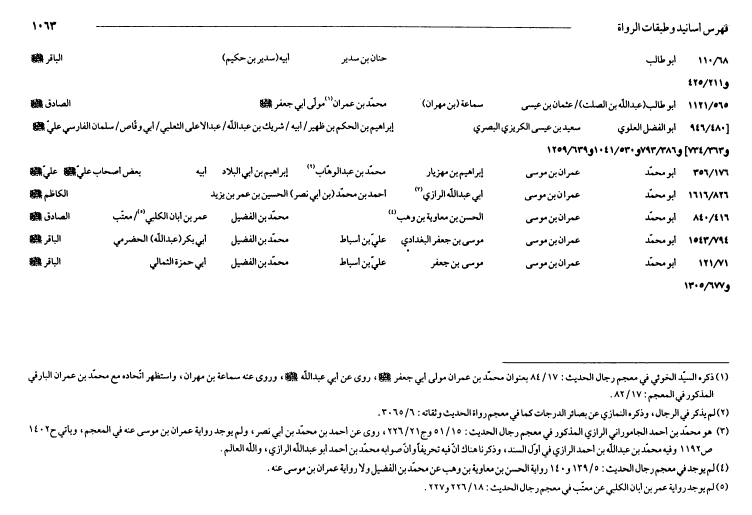 فهرس أسانيد وطبقات الرواة ١٠٦٣
١١٠/٦٨ أبو طالب حنان بن سدير أبيه(سدير بن حكيم) الباقر ﷺ
و٤٢٥/٢١١
١١٢١/٥٦٥ أبو طالب(عبدالله بن الصلت)/عثمان بن عيسى سماعة (بن مهران) محمّد بن عمران(١)مولى أبي جعفر ﷺ الصادق ﷺ
[٩٤٦/٤٨٠ أبو الفضل العلوي سعيد بن عيسى الكريزي البصري إبراهيم بن الحكم بن ظهير/ أبيه / شريك بن عبدالله/ عبدالأعلى الثعلبي/ أبي وقّاص/ سلمان الفارسي عليّ ﷺ
٧٣٤/٣٦٣] و٧٩٣/٣٨٦و١٠٤١/٥٣٠و١٢٥٩/٦٣٩
٣٥٦/١٧٦ أبو محمّد عمران بن موسى إبراهيم بن مهزيار محمّد بن عبدالوهّاب(٢) إبراهيم بن أبي البلاد أبيه بعض أصحاب عليّ ﷺ عليّ ﷺ
١٦١٦/٨٢٦ أبو محمّد عمران بن موسى أبي عبدالله الرازي(٣) أحمد بن محمّد (بن أبي نصر) الحسين بن عمر بن يزيد الكاظم ﷺ
٨٤٠/٤١٦ أبو محمّد عمران بن موسى الحسن بن معاوية بن وهب(٤) محمّد بن الفضيل عمر بن أبان الكلبي(٥)/ معتّب الصادق ﷺ
١٥٤٣/٧٩٤ أبو محمّد عمران بن موسى موسى بن جعفر البغدادي عليّ بن أسباط محمّد بن الفضيل أبي بكر(عبدالله) الحضرمي الباقر ﷺ
١٢١/٧١ أبو محمّد عمران بن موسى موسى بن جعفر عليّ بن أسباط محمّد بن الفضيل أبي حمزة الثمالي الباقر ﷺ
و١٣٠٥/٦٧٧
(١) ذكره السيّد الخوئي في معجم رجال الحديث : ٨٤/١٧ بعنوان محمّد بن عمران مولى أبي جعفر ﷺ ، روى عن أبي عبدالله ﷺ ، وروى عنه سماعة بن مهران ، واستظهر اتّحاده مع محمّد بن عمران البارقي
المذكور في المعجم : ٨٢/١٧ .
(٢) لم يذكر في الرجال ، وذكره النمازي عن بصائر الدرجات كما في معجم رواة الحديث وثقاته : ٣٠٦٥/٦ .
(٣) هو محمّد بن أحمد الجاموراني الرازي المذكور في معجم رجال الحديث : ٥١/١٥ وج٢٢٦/٢١ ، روى عن أحمد بن محمّد بن أبي نصر ، ولم يوجد رواية عمران بن موسى عنه في المعجم ، ويأتي ح١٤٠٢
ص١١٩٢ وفيه محمّد بن عبدالله بن أحمد الرازي في أوّل السند ، وذكرنا هناك أنّ فيه تحريفاً وأنّ صوابه محمّد بن أحمد أبو عبدالله الرازي ، والله العالم .
(٤) لم يوجد في معجم رجال الحديث : ١٣٩/٥ و١٤٠ رواية الحسن بن معاوية بن وهب عن محمّد بن الفضيل ولا رواية عمران بن موسى عنه .
(٥) لم يوجد رواية عمر بن أبان الكلبي عن معتّب في معجم رجال الحديث : ٢٢٦/١٨ و٢٢٧ .